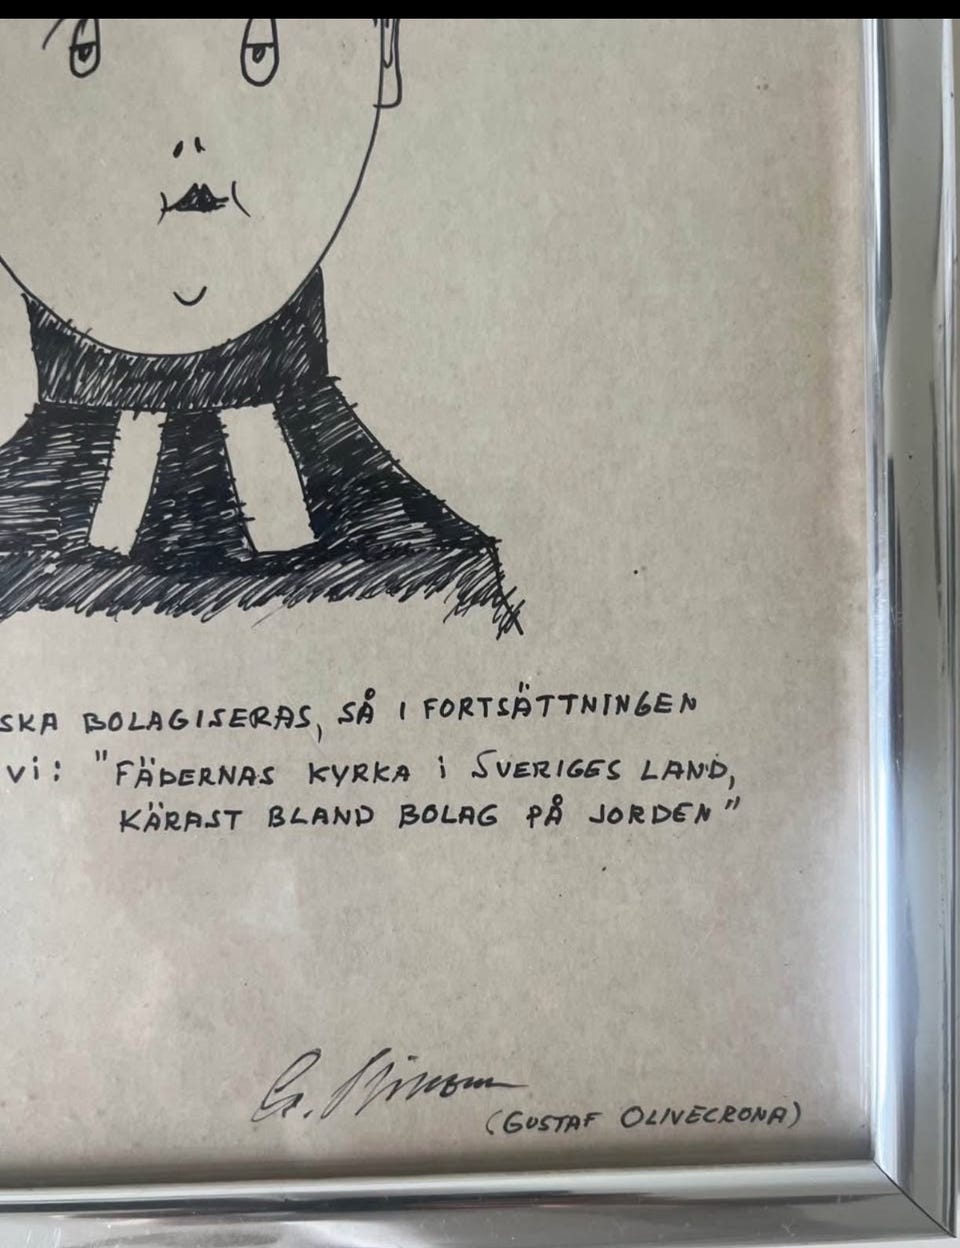 SKA BOLAGISERAS, SÅ I FORTSÄTTNINGEN
Vi: "FÄDERNAS KYRKA i SVERIGES LAND,
KÄRAST BLAND BOLAG PÅ JORDEN"
(GUSTAF OLIVECRONA)